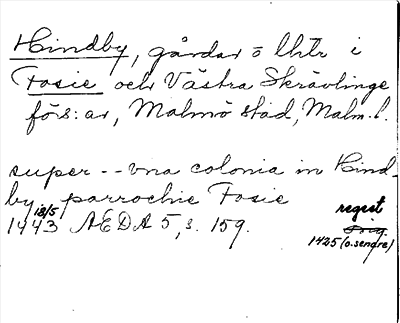 Hindby, gårdar o lhtr i
Fosie och Västra Skrävlinge
förs:ar, Malmö stad, Malm. l.
super -- vna colonia in Hind-
by parrochie Fosie
18/5
1443 AEDA 5, s. 159.
regest
orig.
1425 (o. senare)